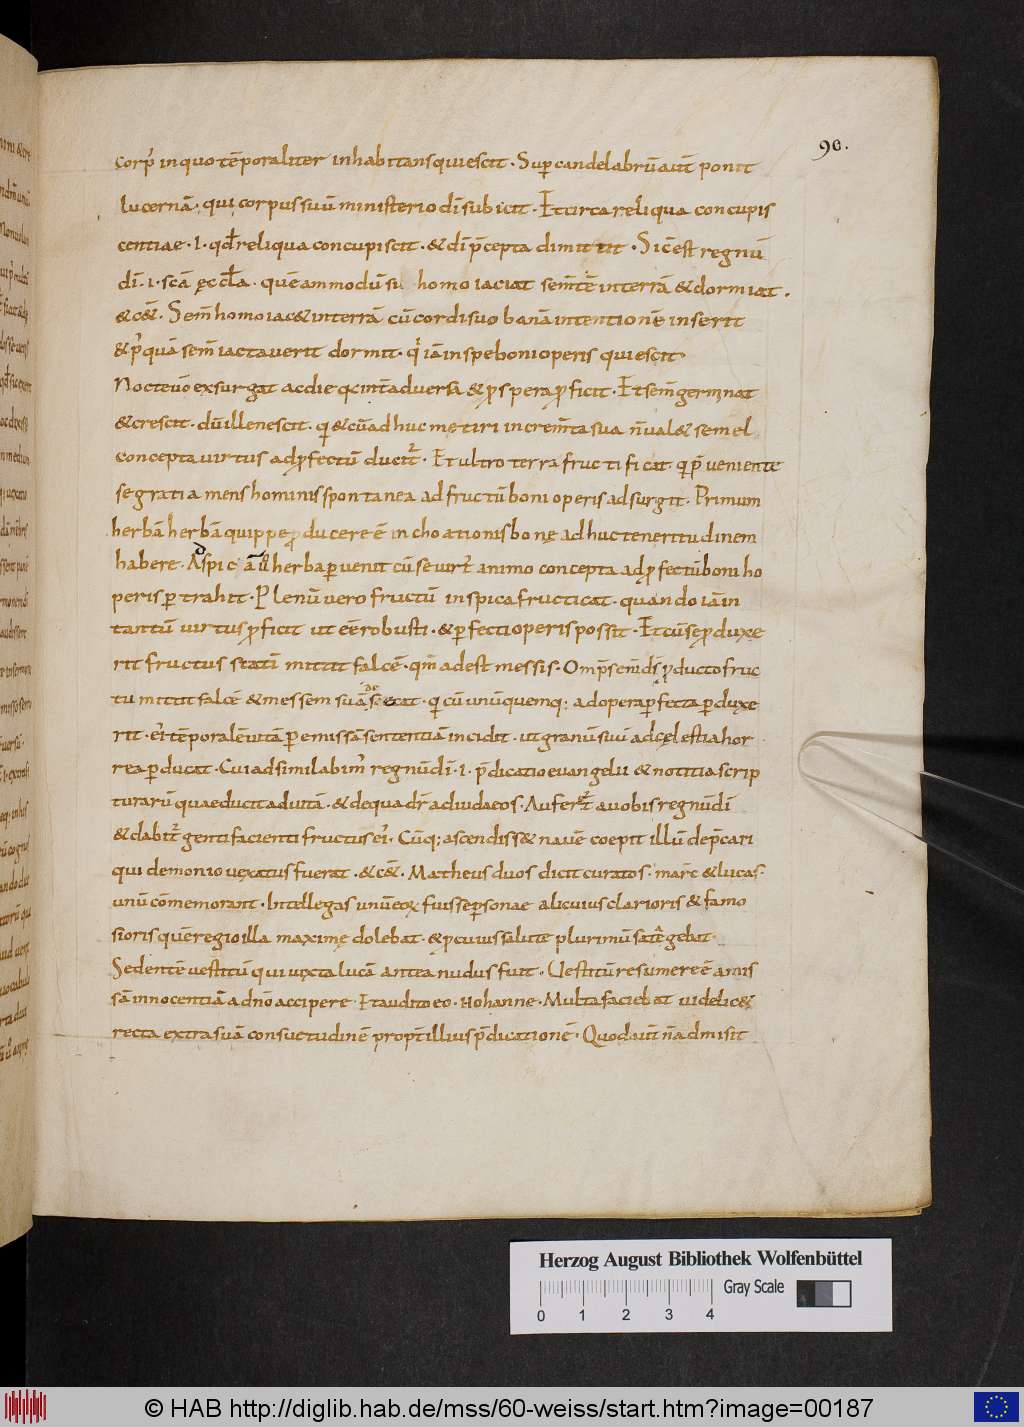 90.
corp᾽ inquo tēporaliter inhabitans quiescit · Sup candelabrū aut̄ ponit
lucernā · qui corpus suū ministerio dī subicit · Et circa reliqua concupis
centiae · i · qd̄ reliqua concupiscit · & dī p̄cepta dimittit · Sic est regnū
dī · i · scā ęccl̄a · quēammodū si homo iaciat sem̄tē interrā & dormiat ·
& cēt · Sem̄ homo iac& interrā cū cordi suo bonā intentionē inserit
& p᾽quā sem̄ iactaverit dormit · q᾽ iā inspe boni operis quiescit
Nocte v̄o exsurgat ac die q int̄ adversa & pspera pficit · Et sem̄ germ̄nat
& crescit · dū ille nescit · q & cū adhuc metiri increm̄ta sua n̄ val& semel
concepta virtus ad pfectū ducit᾽ · Et ultro terra fructificat · q p̄veniente
se gratia mens hominis spontanea ad fructū boni operis adsurgit · Primum
herbā herbā quippe producere ē inchoationis bonę adhuc teneritudinem
habere · Ad spicā v̄o herba pervenit cū se virt᾽ animo concepta ad pfectū boni ho
peris ptrahit · Plenū vero fructū in spica fructicat · quando iā in
tantū virtus pficit ut eē robusti · & pfecti operis possit · Et cū se pduxe
rit fructus statī mittit falcē · qm̄ adest messis · Omp̄s enī ds̄ pducto fruc
tu mittit falcē & messem suā desecat · q cū unūquemq; ad opera pfecta pduxe
rit · ei᾽ tēporalē vitā p emissā sententiā incidit · ut granū suū ad cęlestia hor
rea pducat · Cui adsimilabim᾽ regnū dī · i · p̄dicatio evangelii & notitia scrip
turarū quae ducit ad vitā · & de qua dr̄ ad iudaeos · Aufert᾽ a vobis regnū dī
& dabit᾽ genti facienti fructus ei᾽ · Cūq; ascendiss& navē coepit illū dep̄cari
qui demonio vęxatus fuerat · & cēt · Matheus duos dicit curatos · marc̄ & lucas ·
unū cōmemorant · Intellegas unū eox fuisse psonae alicuius clarioris & famo
sioris quē regio illa maximę dolebat · & p cuius salute plurimū satē gebat
Sedentē vestitū qui iuxta lucā antea nudus fuit · Vestitū resumere ē amis
sā innocentiā ad nō accipere · Et audito eo · Hohanne · Multa faciebat videlic&
recta extra suā consuetudinē propt̄ illius p̄dicationē · Quod aut̄ n̄ admisit
Herzog August Bibliothek Wolfenbüttel
Gray Scale
0 1 2 3 4
© HAB http://diglib.hab.de/mss/60-weiss/start.htm?image=00187